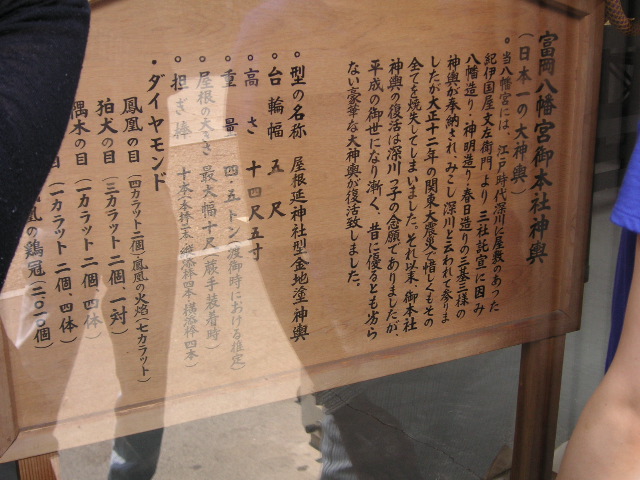 富岡八幡宮御本社神輿
(日本一の大神輿)
。当八幡宮には、江戸時代深川に屋敷のあった
紀伊国屋文左衛門より三社託宣に因み
八幡造り・神明造り・春日造りの三基三様の
神輿が奉納され、みこし深川と云われて参りま
したが大正十二年の関東大震災で惜しくもその
全てを焼失してしまいました。それ以来、御本社
神輿の復活は深川っ子の念願でありましたが、
平成の御世になり漸く、昔に優るとも劣ら
ない豪華な大神輿が復活致しました。
。型の名称 屋根延神社型金地塗神輿
。台輪幅 五尺
。高さ 十四尺五寸
。重量 四・五トン(渡御時における推定)
。屋根の大きさ 最大幅十尺(蕨手装着時)
。担ぎ棒
・ダイヤモンド
鳳凰の目(四カラット二個・鳳凰の火焔(七カラット)
狛犬の目(三カラット二個、一対)
隅木の目(一カラット二個 四体)
目(一カラット二個 四体)
凰の鶏冠(二〇一〇個)